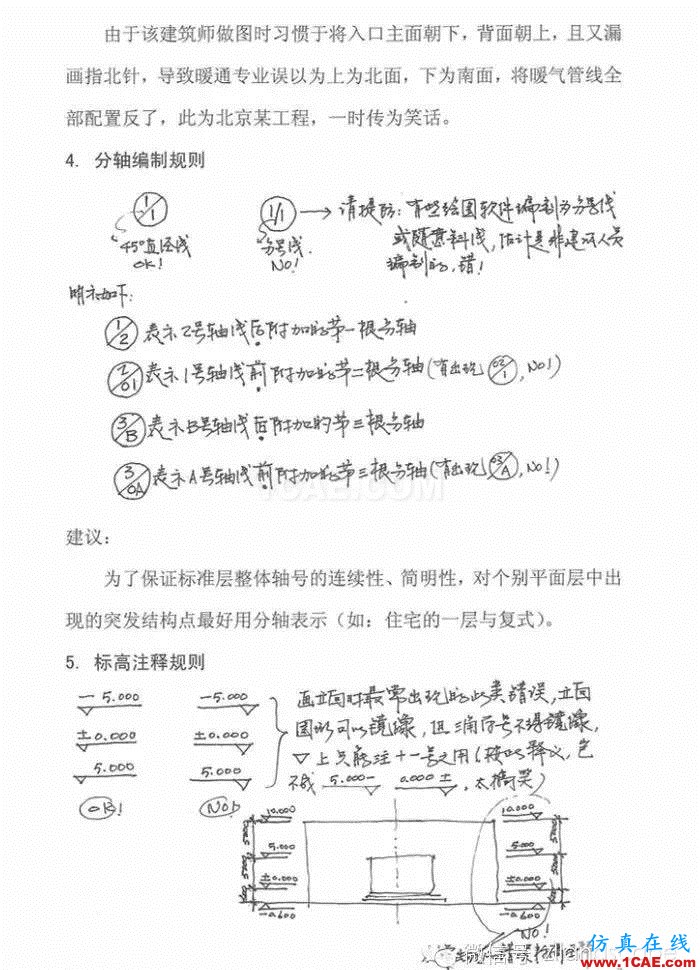 由于该建筑师做图时习惯于将入口主面朝下，背面朝上，且又漏
画指北针，导致暖通专业误以为上为北面，下为南面，将暖气管线全
部配置反了，此为北京某工程，一时传为笑话。
4. 分轴编制规则
1/1 1/1 → 请提防：有些绘图软件编制为分号线
45°直径线 分号线 或随意斜线，估计是非建筑人员
OK! NO! 编制的，错!
明示如下：
1/2 表示2号轴线后附加的第一根分轴
2/01 表示1号轴线前附加的第二根分轴(有出现 02/1, NO!)
3/B 表示B号轴线后附加的第三根分轴
3/0A 表示A号轴线前附加的第三根分轴(有出现 03/A, NO!)
1CAE.COM
建议：
为了保证标准层整体轴号的连续性、简明性，对个别平面层中出
现的突发结构点最好用分轴表示（如：住宅的一层与复式）。
5. 标高注释规则
－5.000 －5.000 画立面时最常出现的此类错误，立面
±0.000 ±0.000 图形可以镜像，但三角符号不得镜像，
5.000 5.000 ▽上只能注＋－号之用(按此释义，岂
不成 5.000－ 0.000±，太搞笑)
OK! NO!
10.000 10.000
5.000 5.000
±0.000 ±0.000
－0.600 －0.600
NO!
仿真在线
www.1CAE.com